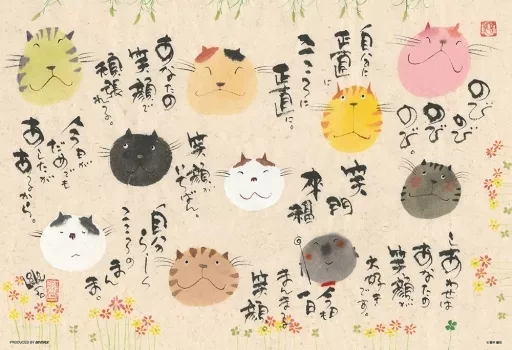 のび
のび
のび
のび
自分に
正直に
こころに
正直に。
あなたの
笑顔で
頑張れる。
今日が
だめでも
あしたが
あるから。
笑顔が
いちばん。
笑門
来福
自分らしく
こころの
まんま。
しあわせな
あなたの
笑顔が
大好き
です。
今日も
一日
まあるい
笑顔。
PRODUCED BY BEVERLY